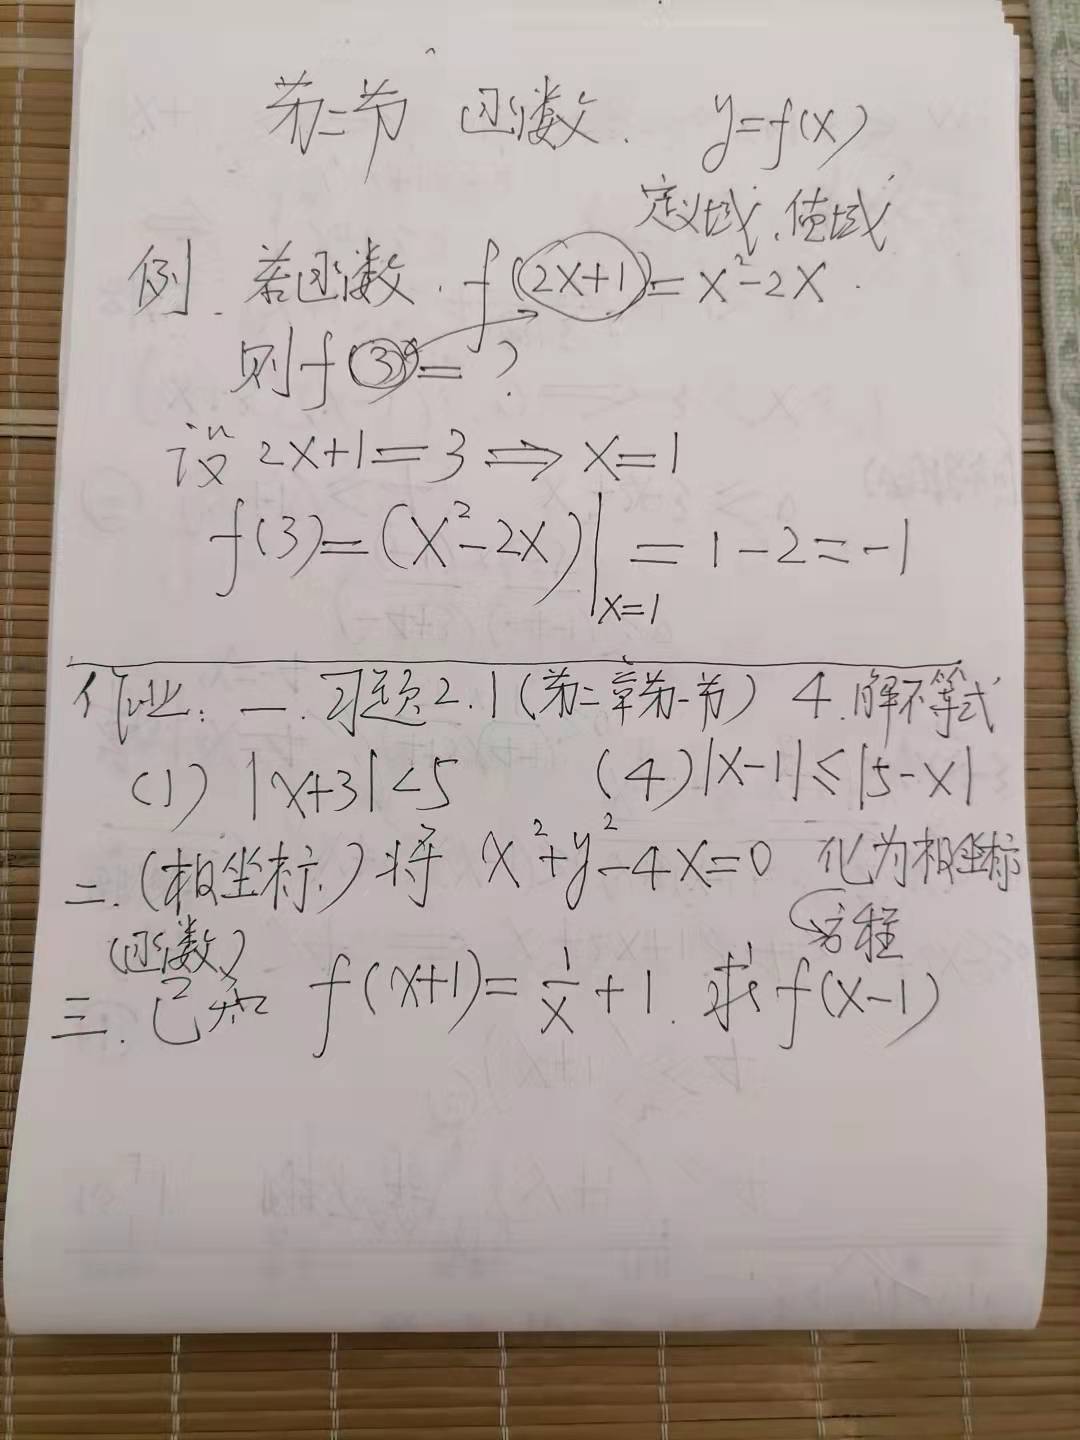 第二节 函数. y=f(x)
定义域、值域
例. 若函数. f(2x+1)=x²-2x.
则f(3)=?
设 2x+1=3⇒x=1
f(3)=(x²-2x)|x=1 =1-2=-1
作业: 一. 习题2.1(第二章第一节) 4.解不等式
(1) |x+3|<5 (4)|x-1|≤|5-x|
二.(极坐标.)将 x²+y²-4x=0 化为极坐标
方程
(函数)
三. 已知 f(x+1)=1/x+1. 求f(x-1)